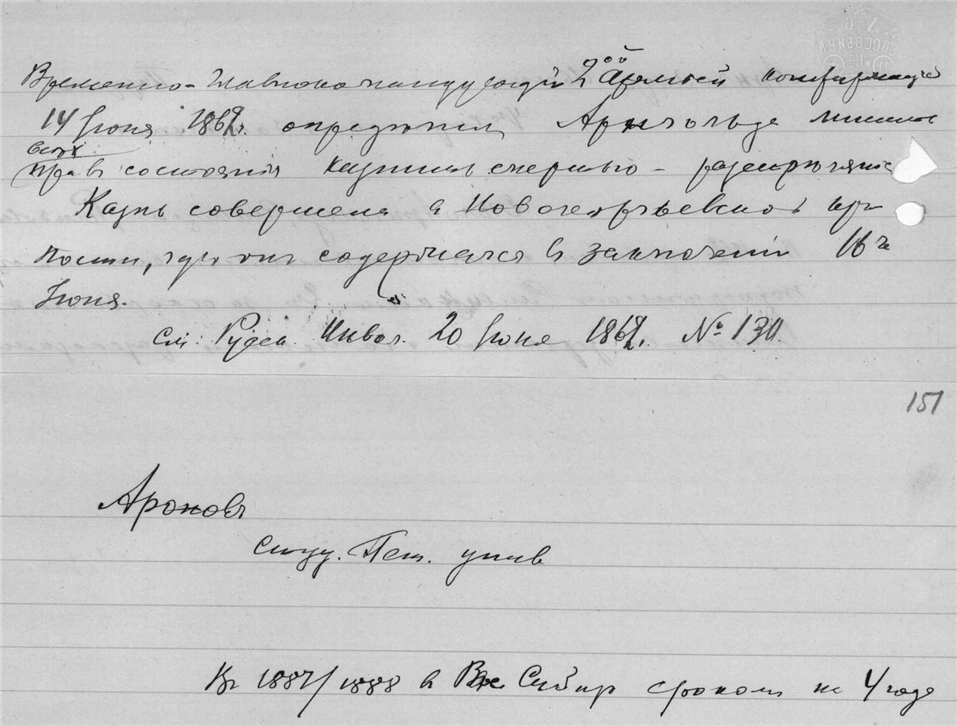 Временно-Главнокомандующий 2ой Армией конфирмацией
14 Июня 1862г. определил Арнгольда лишив
всех
прав состояния казнить смертью – расстрелянием
Казнь совершена в Новогеоргьевской кре
пости, где он содержался в заключении 16го
Июня.
См. Русск. Инвал. 20 Июня 1862г. № 134.
151
Ароновъ
студ. Пет. унив
Въ 1887/1888 в Вос. Сибир сроком на 4 года